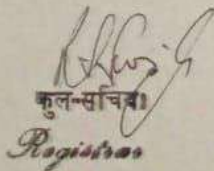 कुल-सचिव
Registrar